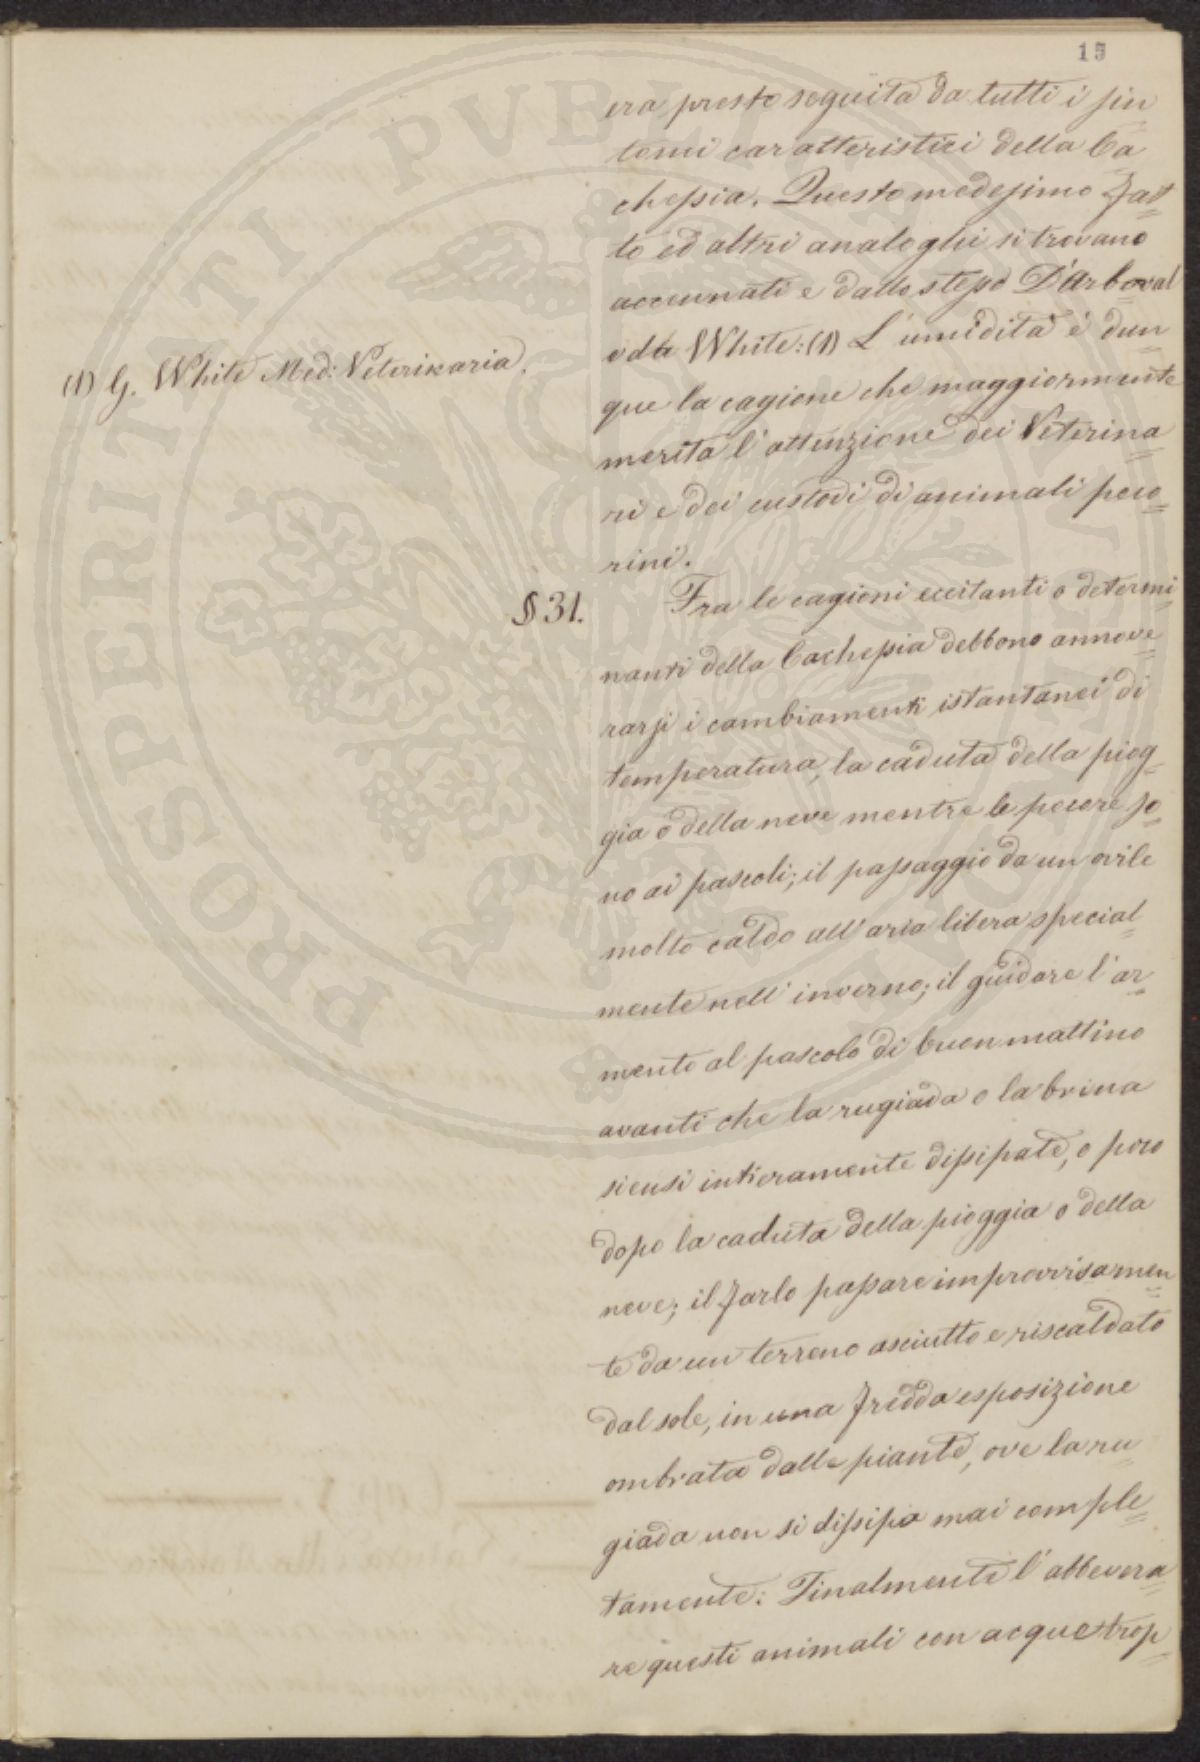 15
era presto seguita da tutti i sin
tomi caratteristici della Ca
chessia. Questo medesimo fat=
to ed altri analoghi si trovano
accennati e dallo stesso D'Arboval
e da White: (1) L'umidità è dun
(1) G. White Med: Veterinaria.
que la cagione che maggiormente
merita l'attenzione dei Veterina=
ri e dei custodi di animali peco=
rini.
§ 31. Fra le cagioni eccitanti o determi=
nanti della Cachessia debbono annove=
rarsi i cambiamenti istantanei di
temperatura, la caduta della piog=
gia o della neve mentre le pecore so=
no ai pascoli; il passaggio da un ovile
molto caldo all'aria libera special=
mente nell'inverno; il guidare l'ar=
mento al pascolo di buon mattino
avanti che la rugiada o la brina
siensi intieramente dissipate, o poco
dopo la caduta della pioggia o della
neve; il farlo passare improvvisamen=
te da un terreno asciutto e riscaldato
dal sole, in una fredda esposizione
ombrata dalle piante, ove la ru=
giada non si dissipa mai comple=
tamente: Finalmente l'abbevera=
re questi animali con acque trop=
PROSPERITATI PVBLICAE